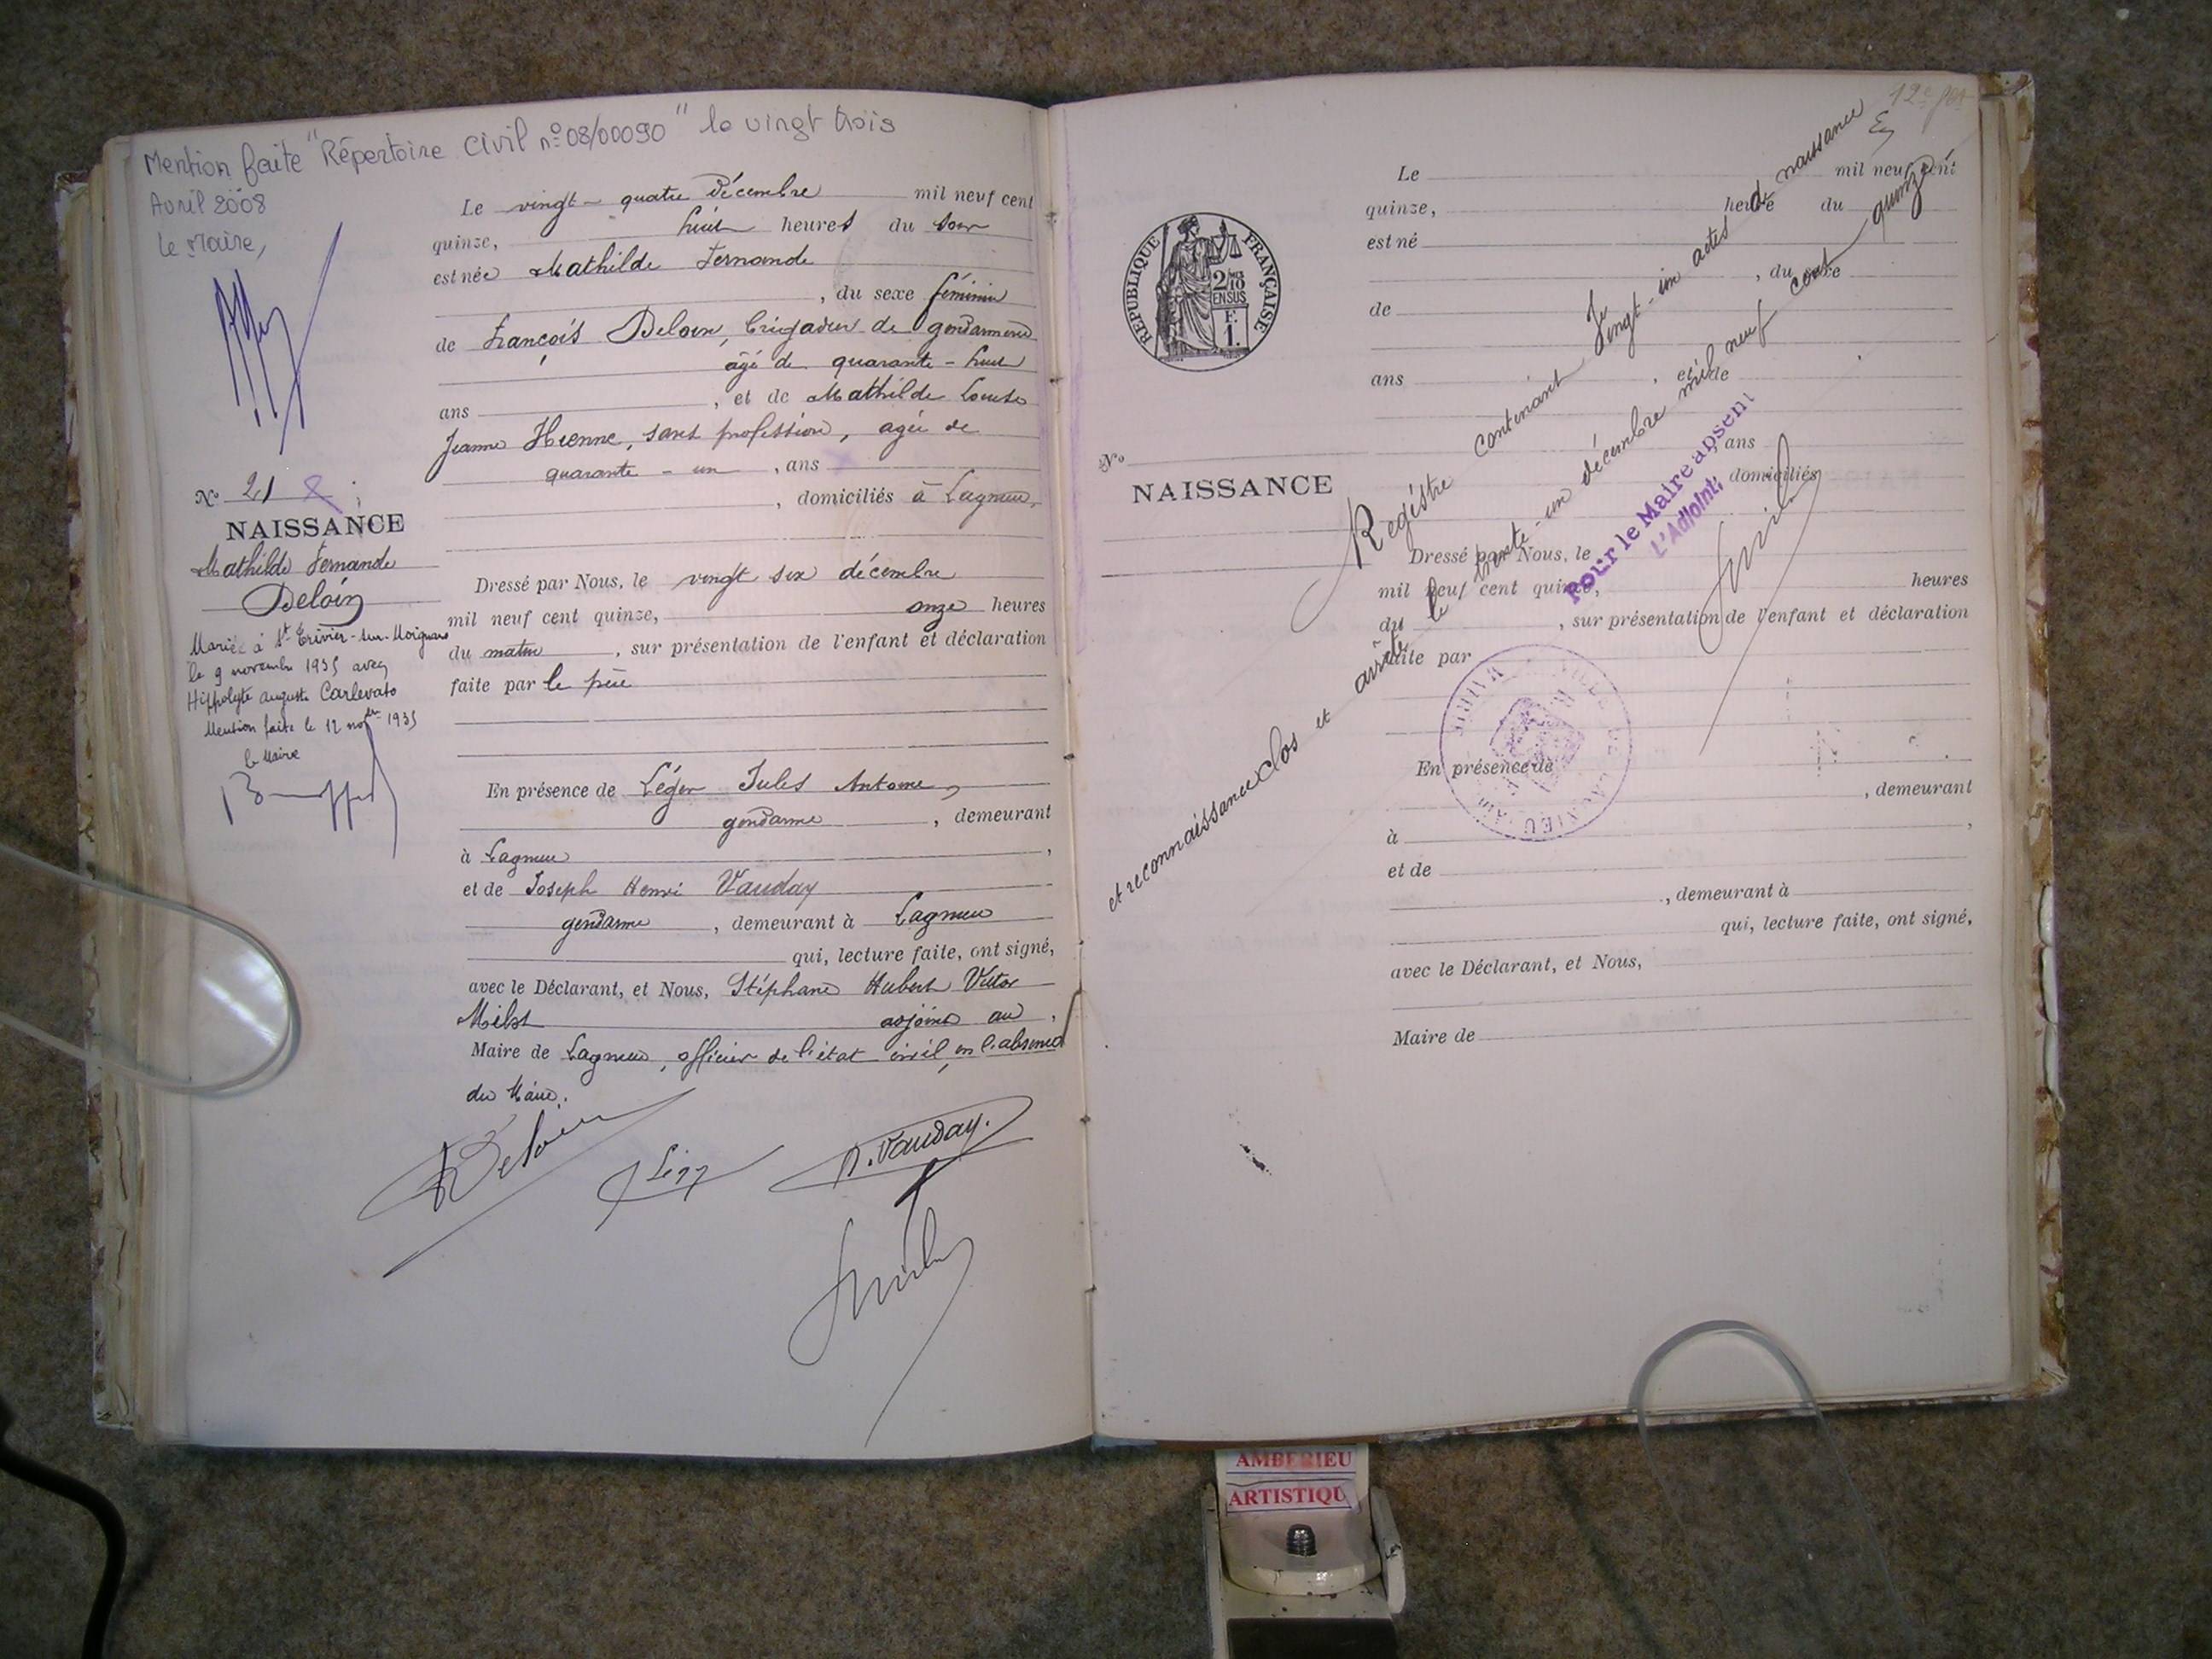 Mention faite "Répertoire Civil n° 08/00090" le vingt trois
Avril 2008
le Maire,
N° 21
NAISSANCE
Mathilde Fernande
Deloin
Mariée à St Trivier-sur-Moignans
le 9 novembre 1935 avec
Hippolyte Auguste Carlevato
Mention faite le 12 nobre 1935
le Maire
Le vingt-quatre Décembre mil neuf cent
quinze, huit heures du soir
est née Mathilde Fernande
, du sexe féminin
de François Deloin, brigadier de gendarmerie
âgé de quarante-huit
ans , et de Mathilde Louise
Jeanne Hienne, sans profession, agée de
quarante-un , ans
, domiciliés à Lagnieu,
Dressé par Nous, le vingt six décembre
mil neuf cent quinze, onze heures
du matin , sur présentation de l'enfant et déclaration
faite par le père
En présence de Léger Jules Antoine,
gendarme , demeurant
à Lagnieu ,
et de Joseph Henri Vauday
gendarme , demeurant à Lagnieu
qui, lecture faite, ont signé,
avec le Déclarant, et Nous, Stéphane Hubert Victor
Milset adjoint au ,
Maire de Lagnieu, officier de l'état civil, en l'absence
du Maire.
Deloin
Léger
Vauday.
RÉPUBLIQUE FRANÇAISE
2/10
EN SUS
F.
1.
N°
NAISSANCE
Le mil neuf cent
quinze, heure du
est né
, du sexe
de
ans , et de
ans
domiciliés
Dressé par Nous, le
mil neuf cent quinze, heures
du , sur présentation de l'enfant et déclaration
faite par
En présence de
, demeurant
à ,
et de
, demeurant à
qui, lecture faite, ont signé,
avec le Déclarant, et Nous,
Maire de
Registre contenant Vingt-un actes de naissance
et reconnaissance clos et arrêté le trente-un décembre mil neuf cent quinze
Pour le Maire absent
L'Adjoint,
AMBERIEU
ARTISTIQU